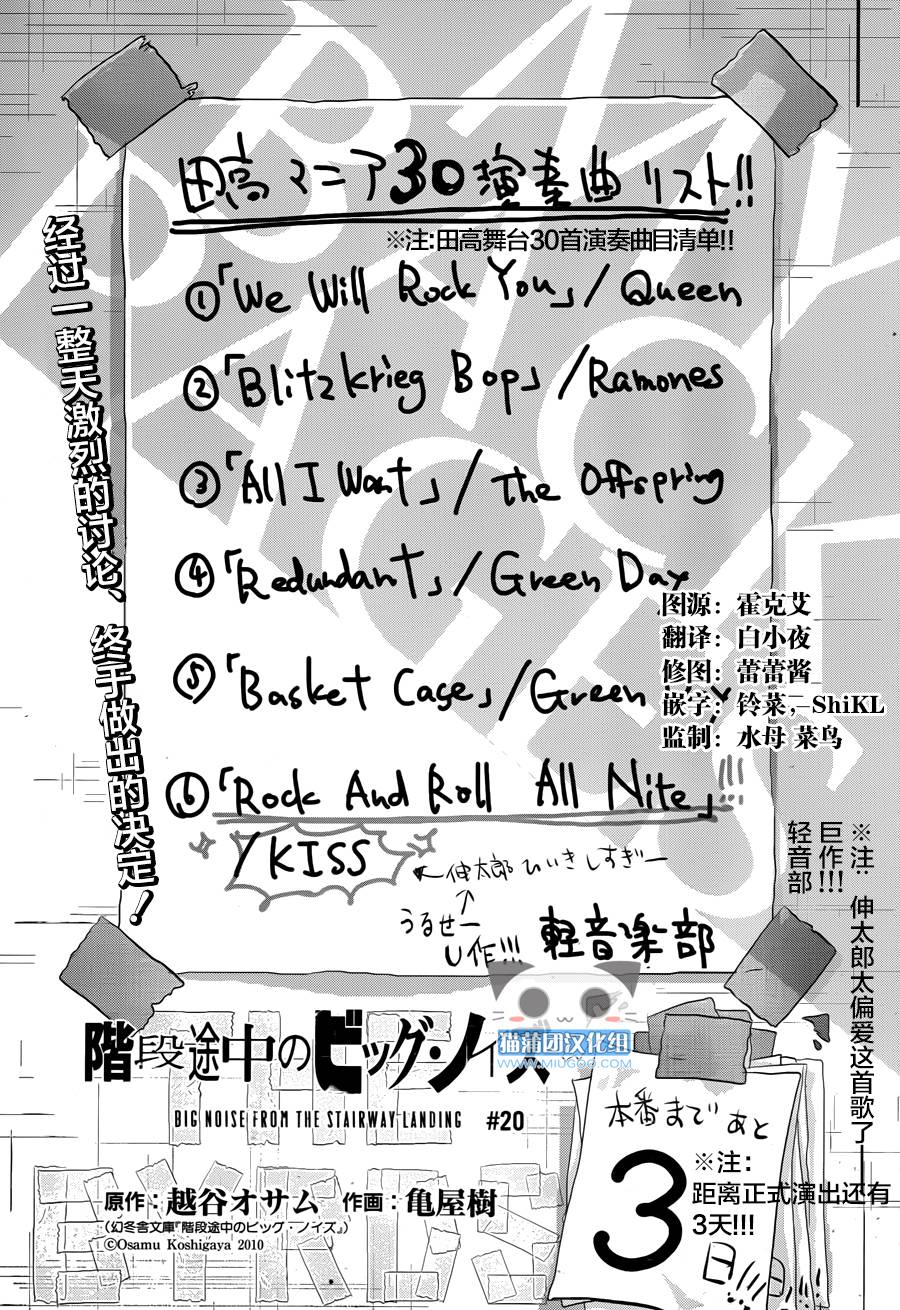 田高マニア30演奏曲リスト!!
※注:田高舞台30首演奏曲目清单!!
①「We Will Rock You」/Queen
②「Blitzkrieg Bop」/Ramones
③「All I Want」/The Offspring
④「Redundant」/Green Day
⑤「Basket Case」/Green
⑥「Rock And Roll All Nite」!!!
/KISS
←伸太郎ひいきしすぎー
↑
うるせー
U作!!!
軽音楽部
经过一整天激烈的讨论、
终于做出的决定!
图源：霍克艾
翻译：白小夜
修图：蕾蕾酱
嵌字：铃菜，ShiKL
监制：水母 菜鸟
※注：伸太郎太偏爱这首歌了—
巨作!!!
轻音部
猫蒲团汉化组
WWW.MIUGOO.COM
階段途中のビッグ・ノイズ
BIG NOISE FROM THE STAIRWAY LANDING #20
原作：越谷オサム 作画：亀屋樹
(幻冬舎文庫『階段途中のビッグ・ノイズ』)
©Osamu Koshigaya 2010
本番まであと
3
日!!!
※注：
距离正式演出还有
3天!!!